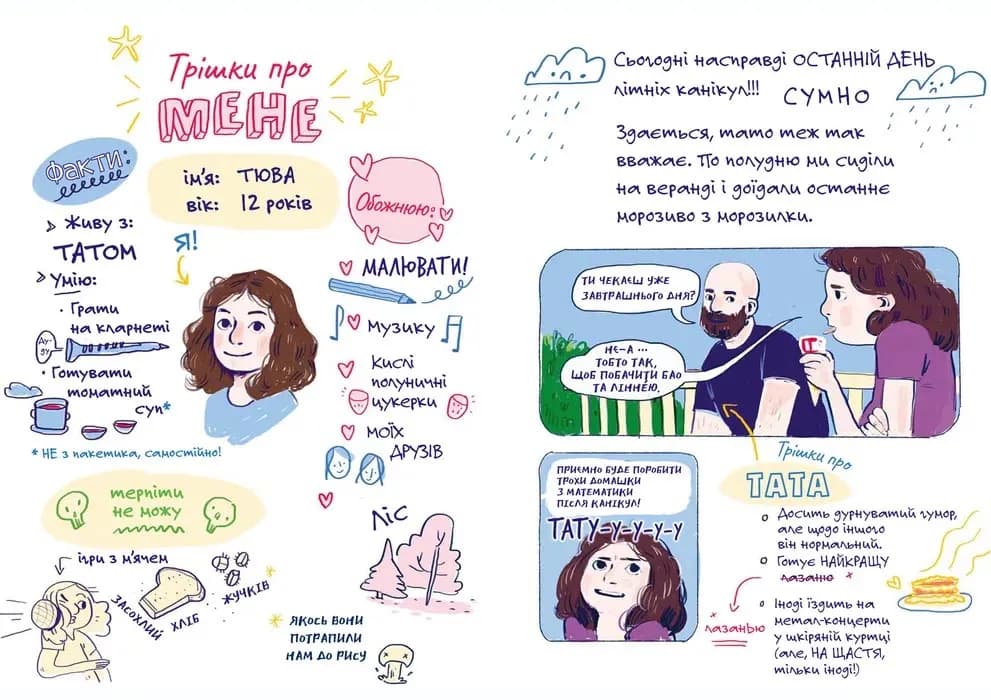 Трішки про
МЕНЕ
Факти:
ім'я: ТЮВА
вік: 12 років
Живу з:
ТАТОМ
Умію:
· Грати
на кларнеті
Ду-
ду
· Готувати
томатний
суп*
* НЕ з пакетика, самостійно!
Я!
Обожнюю:
МАЛЮВАТИ!
музику
Кислі
полуничні
цукерки
моїх
ДРУЗІВ
ЛІС
терпіти
не можу
ігри з м'ячем
ЗАСОХЛИЙ
ХЛІБ
ЖУЧКІВ *
* ЯКОСЬ ВОНИ
ПОТРАПИЛИ
НАМ ДО РИСУ
Сьогодні насправді ОСТАННІЙ ДЕНЬ
літніх канікул!!! СУМНО
Здається, тато теж так
вважає. По полудню ми сиділи
на веранді і доїдали останнє
морозиво з морозилки.
ТИ ЧЕКАЄШ УЖЕ
ЗАВТРАШНЬОГО ДНЯ?
НЕ-А ...
ТОБТО ТАК,
ЩОБ ПОБАЧИТИ БАО
ТА ЛІННЕЮ.
ПРИЄМНО БУДЕ ПОРОБИТИ
ТРОХИ ДОМАШКИ
З МАТЕМАТИКИ
ПІСЛЯ КАНІКУЛ!
ТАТУ-У-У-У-У
Трішки про
ТАТА
Досить дурнуватий гумор,
але щодо іншого
він нормальний.
Готує НАЙКРАЩУ
лазаню *
* лазанью
Іноді їздить на
метал-концерти
у шкіряній куртці
(але, НА ЩАСТЯ,
тільки іноді!)